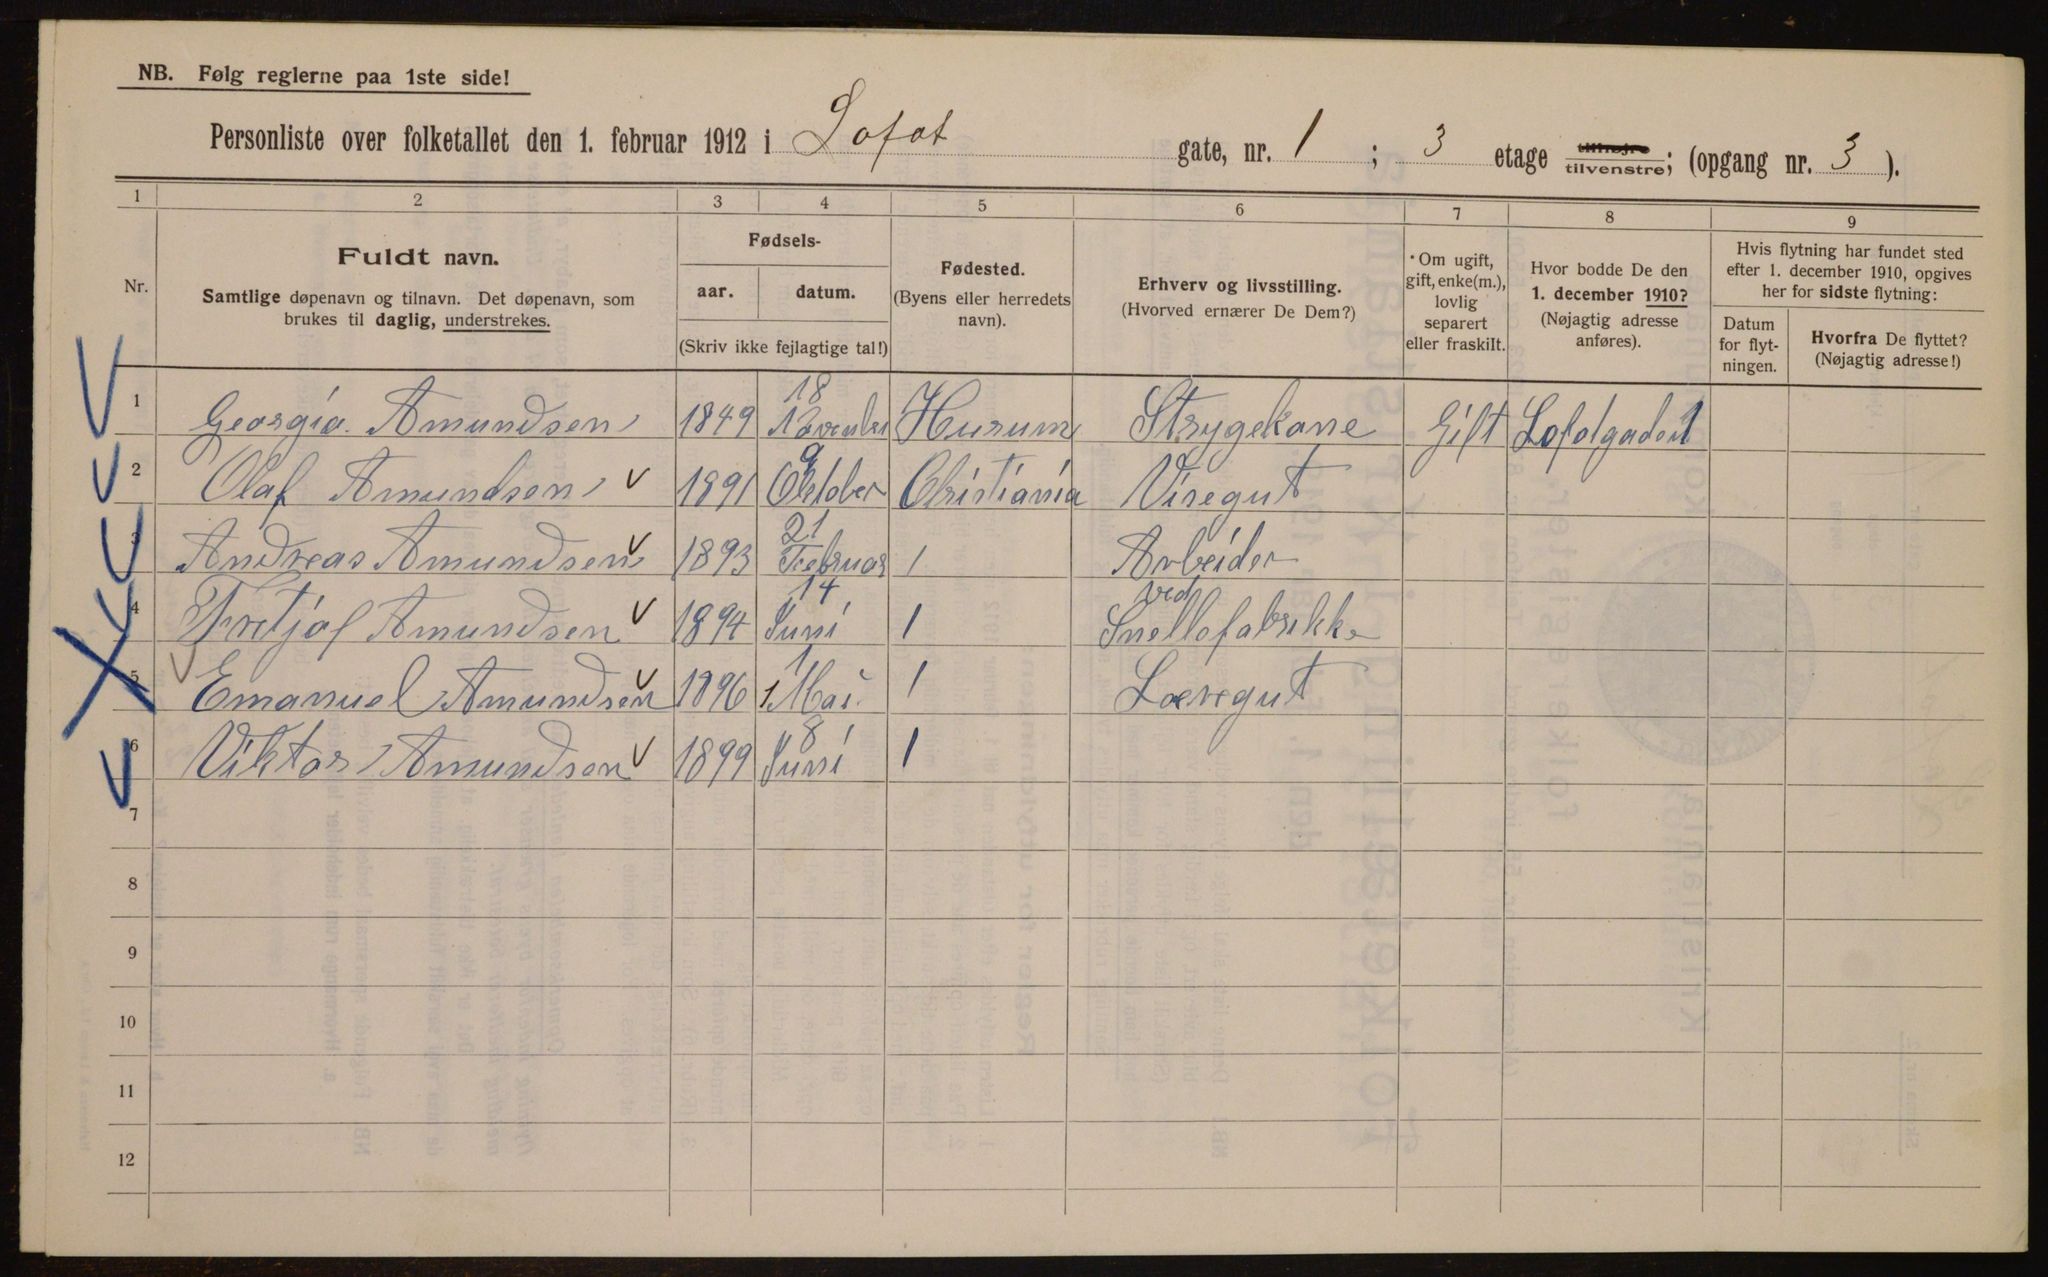 NB. Følg reglerne paa 1ste side!
Personliste over folketallet den 1. februar 1912 i Lofot gate, nr. 1 ; 3 etage tilhøjre tilvenstre; (opgang nr. 3 ).
1 2 3 4 5 6 7 8 9
Nr.
Fuldt navn.
Samtlige døpenavn og tilnavn. Det døpenavn, som
brukes til daglig, understrekes.
Fødsels-
aar. datum.
(Skriv ikke fejlagtige tal!)
Fødested.
(Byens eller herredets
navn).
Erhverv og livsstilling.
(Hvorved ernærer De Dem?)
Om ugift,
gift, enke(m.),
lovlig
separert
eller fraskilt.
Hvor bodde De den
1. december 1910?
(Nøjagtig adresse
anføres).
Hvis flytning har fundet sted
efter 1. december 1910, opgives
her for sidste flytning:
Datum
for flyt-
ningen.
Hvorfra De flyttet?
(Nøjagtig adresse!)
1 Georgia Amundsen 1849 18 November Hurum Strygekone Gift Lofotgaden 1
2 Olaf Amundsen 1891 9 Oktober Christiania Visegut
3 Andreas Amundsen 1893 21 Februar 1 Arbeider
4 Fretjof Amundsen 1894 14 Juni 1 ved Snellefabrikke
5 Emanuel Amundsen 1896 1 Mai 1 Læregut
6 Viktor Amundsen 1899 8 Juni 1
7
8
9
10
11
12